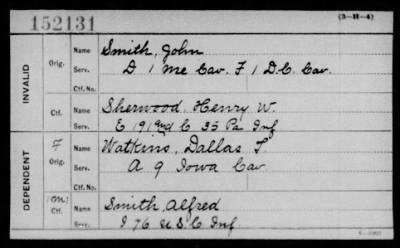 152131
(3-H-4)
INVALID
Orig.
Name Smith, John
Serv. D 1 Me Cav. F 1 D.C. Cav.
Ctf. No.
Ctf.
Name Sherwood, Henry W.
Serv. E 191 C 35 Pa Inf
DEPENDENT
F
Orig.
Name Watkins, Dallas
Serv. A 9 Iowa Cav
Ctf. No.
(M)
Ctf.
Name Smith, Alfred
Serv. I 76 U.S.C Inf.